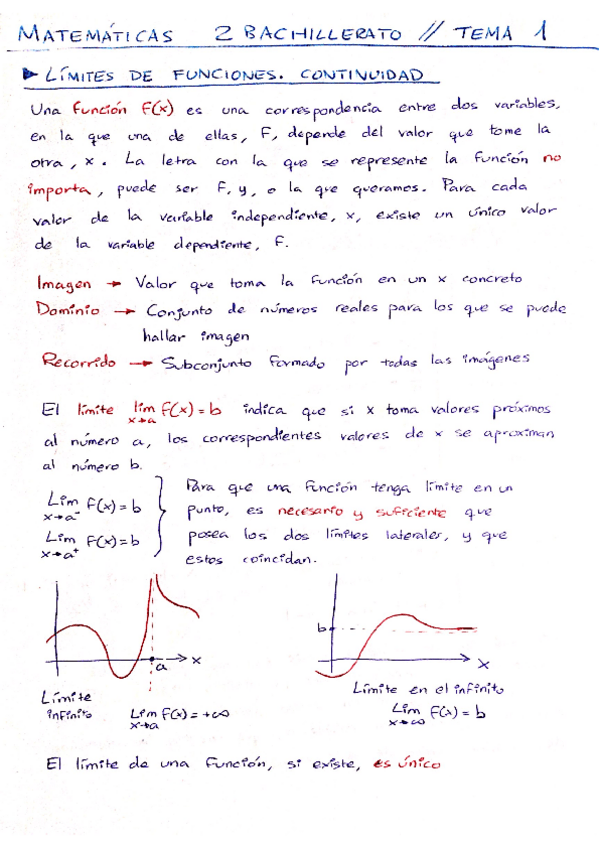 MATEMÁTICAS 2 BACHILLERATO // TEMA 1
► LÍMITES DE FUNCIONES. CONTINUIDAD
Una función F(x) es una correspondencia entre dos variables,
en la que una de ellas, F, depende del valor que tome la
otra, x. La letra con la que se represente la función no
importa, puede ser F, y, o la que queramos. Para cada
valor de la variable independiente, x, existe un único valor
de la variable dependiente, F.
Imagen → Valor que toma la función en un x concreto
Dominio → Conjunto de números reales para los que se puede
hallar imagen
Recorrido → Subconjunto formado por todas las imágenes
El límite lim F(x) = b indica que si x toma valores próximos
x→a
al número a, los correspondientes valores de x se aproximan
al número b.
Lim F(x) = b
x→a⁻
Lim F(x) = b
x→a⁺
Para que una función tenga límite en un
punto, es necesario y suficiente que
posea los dos límites laterales, y que
estos coincidan.
a
x
Límite
infinito
Lim F(x) = +∞
x→a
b
x
Límite en el infinito
Lim F(x) = b
x→∞
El límite de una función, si existe, es único